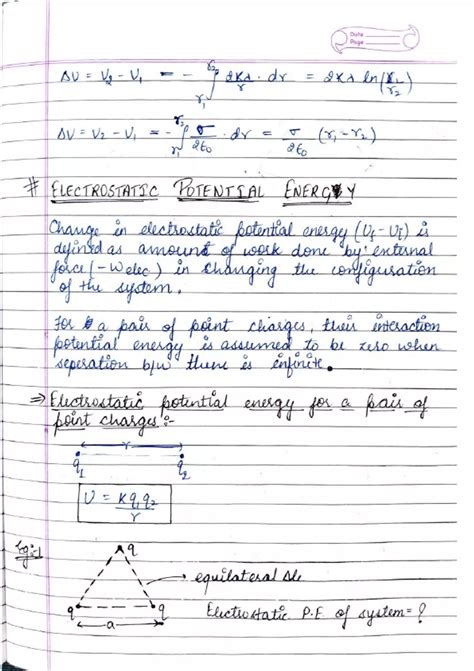 Date
Page
ΔV = V₂ - V₁ = - ∫_{r₁}^{r₂} 2Kλ/r · dr = 2Kλ ln(r₁/r₂)
ΔV = V₂ - V₁ = - ∫_{r₁}^{r₂} σ/2ε₀ · dr = σ/2ε₀ (r₁-r₂)
# ELECTROSTATIC POTENTIAL ENERGY
Change in electrostatic potential energy (Uf - Ui) is
defined as amount of work done by external
force (-Welec) in changing the configuration
of the system.
For a pair of point charges, their interaction
potential energy is assumed to be zero when
seperation b/w there is infinite.
⇒ Electrostatic potential energy for a pair of
point charges:-
r
q₁ q₂
U = Kq₁q₂/r
q
→ equilateral Δle
q q
a
Electrostatic P.E of system = ?